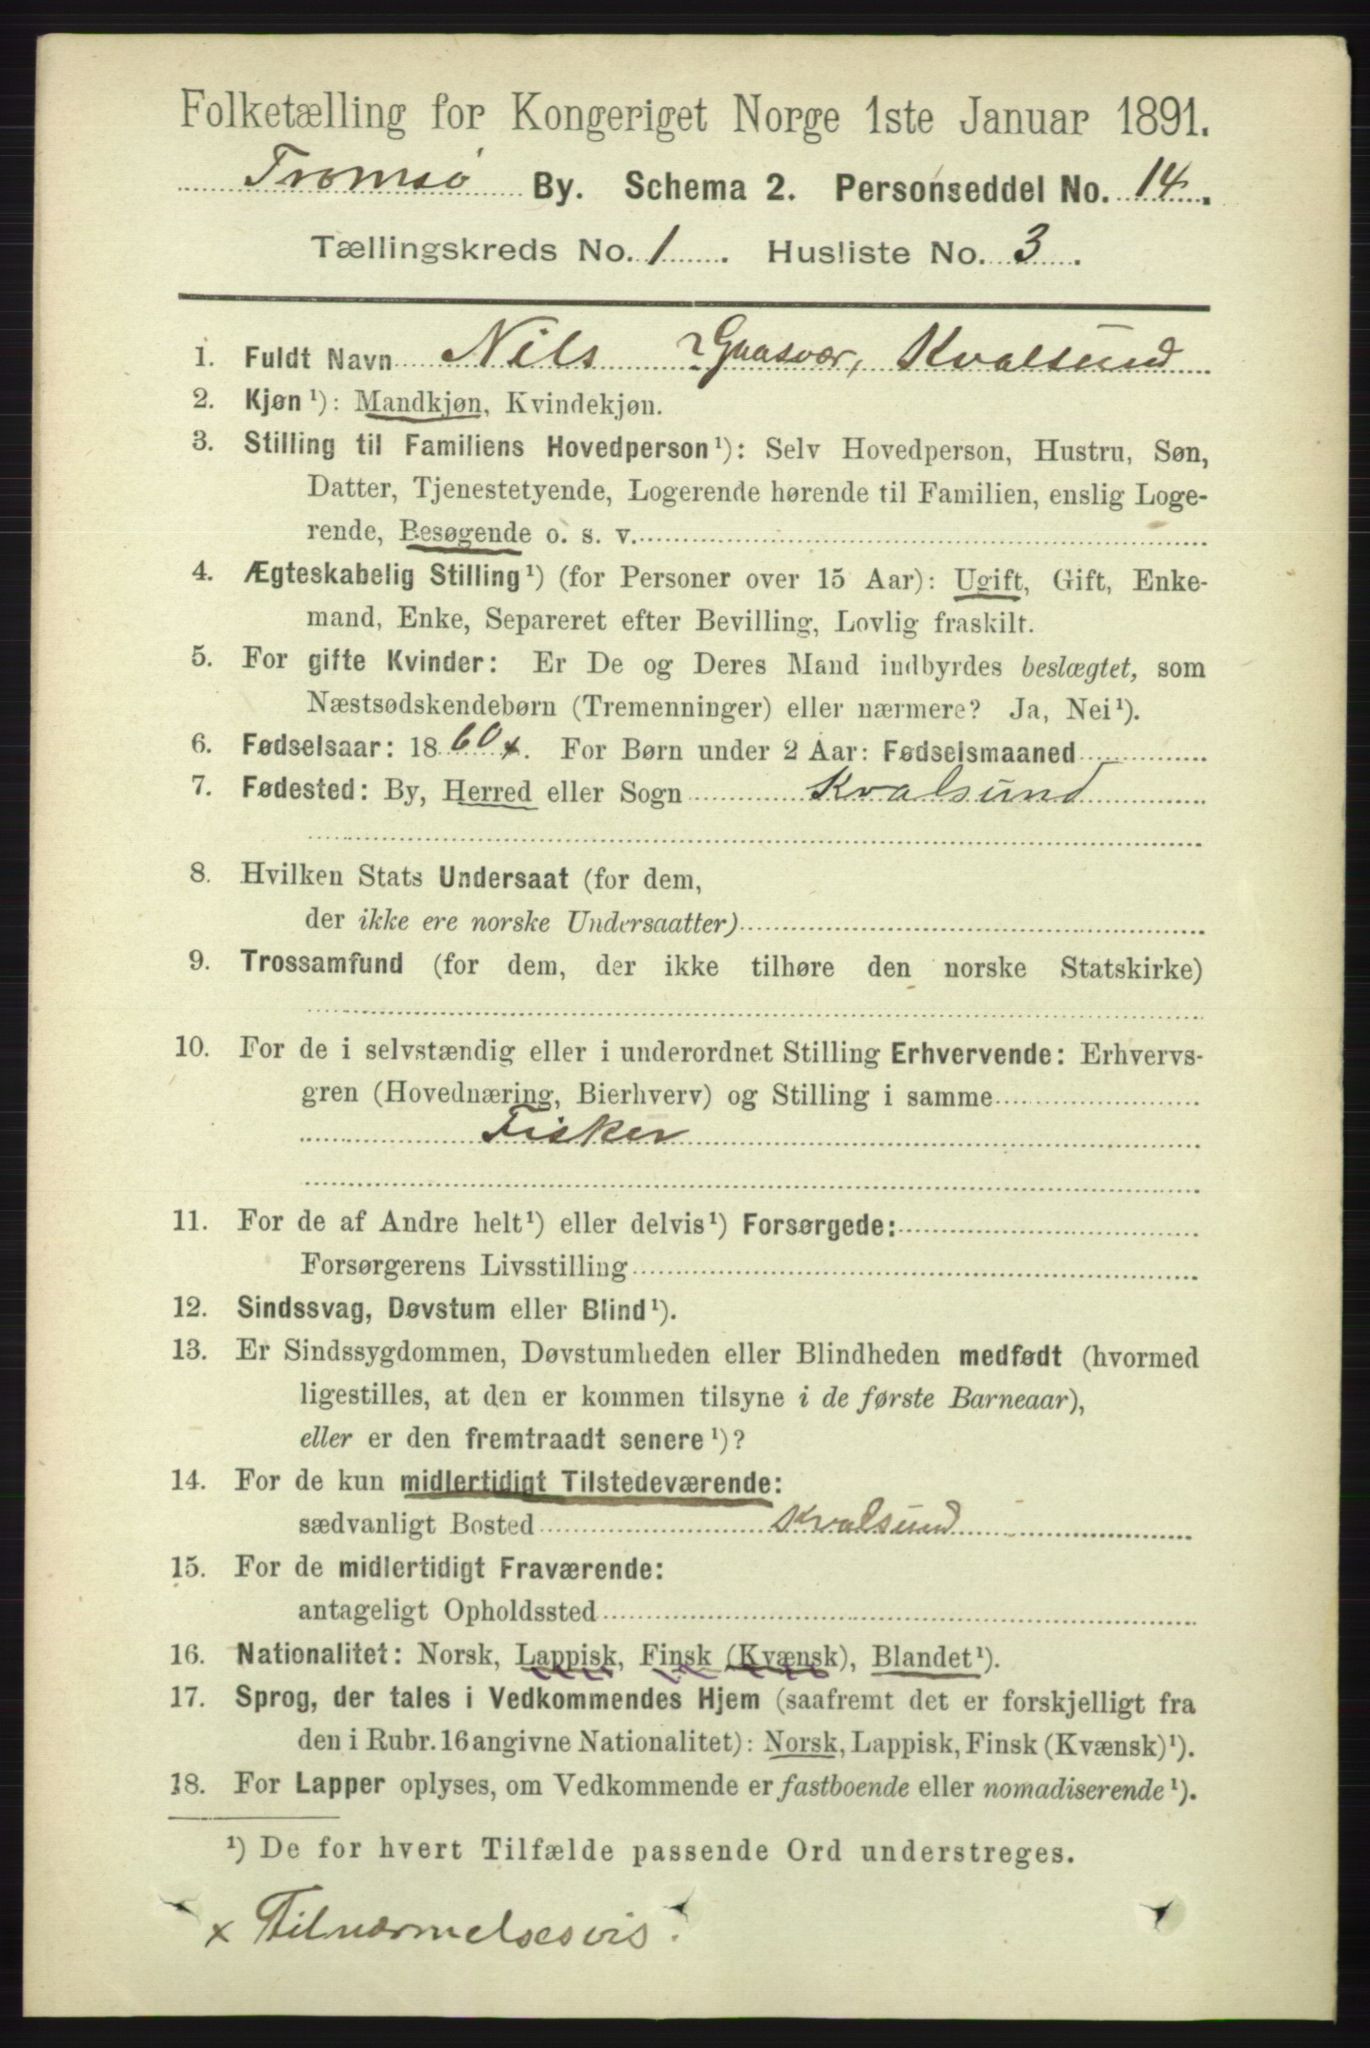 Folketælling for Kongeriget Norge 1ste Januar 1891.
Tromsø By. Schema 2. Personseddel No. 14.
Tællingskreds No. 1. Husliste No. 3.
1. Fuldt Navn Nils ? Gaasvær, Kvalsund
2. Kjøn ¹): Mandkjøn, Kvindekjøn.
3. Stilling til Familiens Hovedperson ¹): Selv Hovedperson, Hustru, Søn,
Datter, Tjenestetyende, Logerende hørende til Familien, enslig Loge-
rende, Besøgende o. s. v.
4. Ægteskabelig Stilling ¹) (for Personer over 15 Aar): Ugift, Gift, Enke-
mand, Enke, Separeret efter Bevilling, Lovlig fraskilt.
5. For gifte Kvinder: Er De og Deres Mand indbyrdes beslægtet, som
Næstsødskendebørn (Tremenninger) eller nærmere? Ja, Nei ¹).
6. Fødselsaar: 1860 x. For Børn under 2 Aar: Fødselsmaaned
7. Fødested: By, Herred eller Sogn Kvalsund
8. Hvilken Stats Undersaat (for dem,
der ikke ere norske Undersaatter)
9. Trossamfund (for dem, der ikke tilhøre den norske Statskirke)
10. For de i selvstændig eller i underordnet Stilling Erhvervende: Erhvervs-
gren (Hovednæring, Bierhverv) og Stilling i samme
Fisker
11. For de af Andre helt ¹) eller delvis ¹) Forsørgede:
Forsørgerens Livsstilling
12. Sindssvag, Døvstum eller Blind ¹).
13. Er Sindssygdommen, Døvstumheden eller Blindheden medfødt (hvormed
ligestilles, at den er kommen tilsyne i de første Barneaar),
eller er den fremtraadt senere ¹)?
14. For de kun midlertidigt Tilstedeværende:
sædvanligt Bosted Kvalsund
15. For de midlertidigt Fraværende:
antageligt Opholdssted
16. Nationalitet: Norsk, Lappisk, Finsk (Kvænsk), Blandet ¹).
17. Sprog, der tales i Vedkommendes Hjem (saafremt det er forskjelligt fra
den i Rubr. 16 angivne Nationalitet): Norsk, Lappisk, Finsk (Kvænsk) ¹).
18. For Lapper oplyses, om Vedkommende er fastboende eller nomadiserende ¹).
¹) De for hvert Tilfælde passende Ord understreges.
x Tilnærmelsesvis.